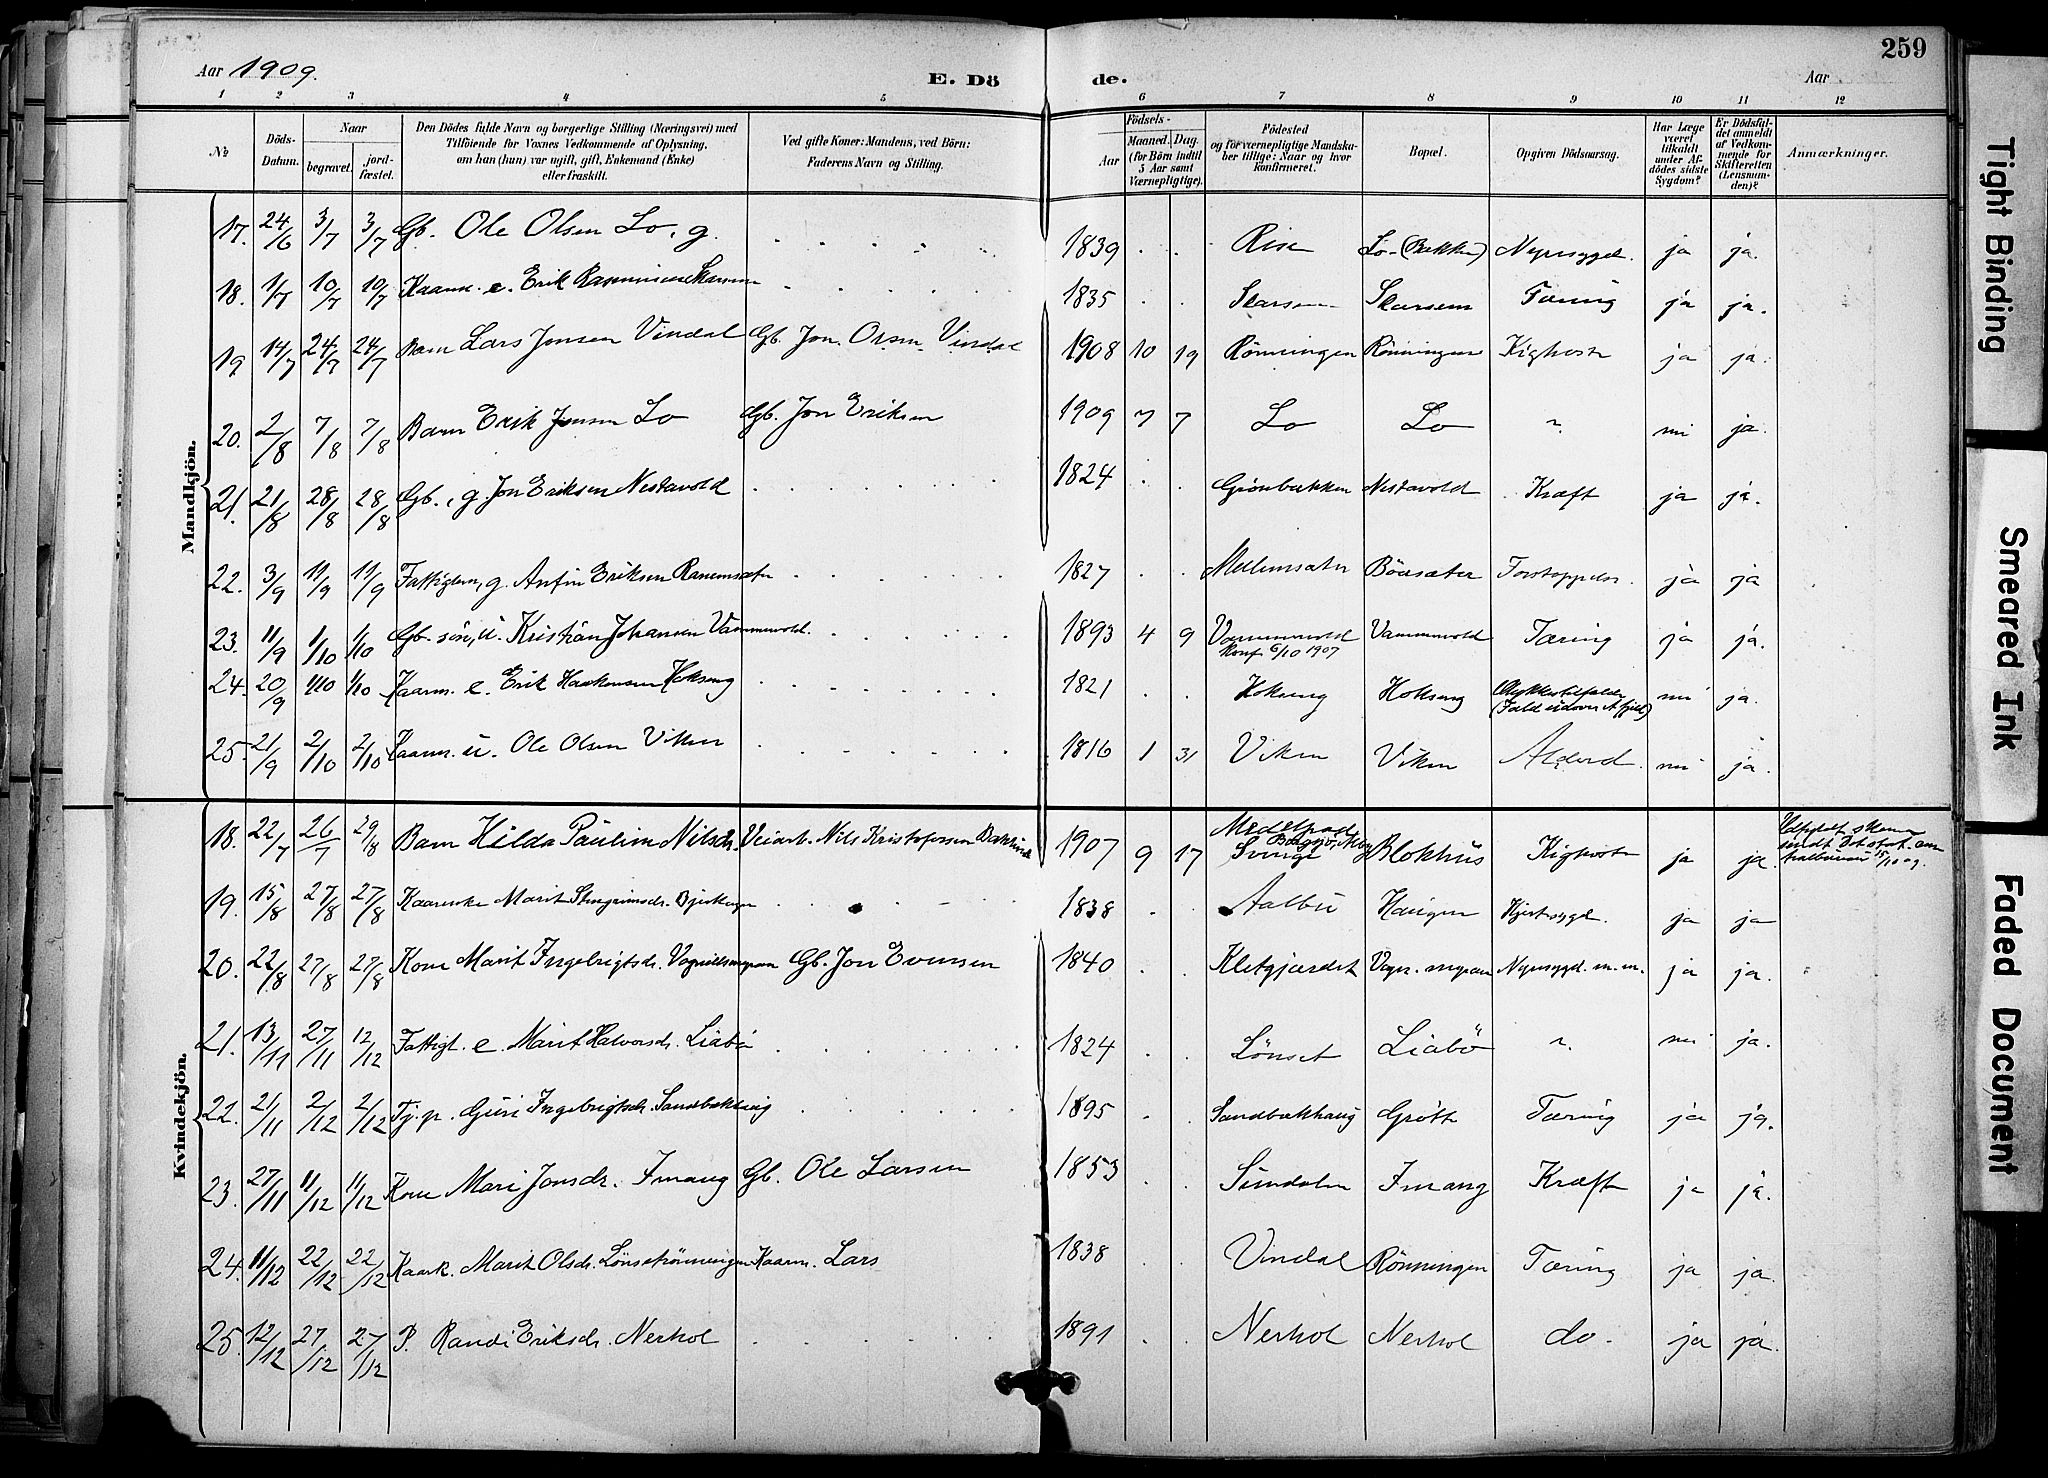 259
Aar 1909.
E. Dö de.
Aar
1 2 3 4 5 6 7 8 9 10 11 12
№
Döds-Datum.
Naar begravet. jordfæstet.
Den Dödes fulde Navn og borgerlige Stilling (Næringsvei) med Tilföiende for Voxnes Vedkommende af Oplysning, om han (hun) var ugift, gift, Enkemand (Enke) eller fraskilt.
Ved gifte Koner: Mandens, ved Börn: Faderens Navn og Stilling.
Födsels- Aar Maaned. Dag. (for Börn indtil 5 Aar samt Værnepligtige).
Födested og for værnepligtige Mandskaber tillige: Naar og hvor konfirmeret.
Bopæl.
Opgiven Dödsaarsag.
Har Læge været tilkaldt under Afdödes sidste Sygdom?
Er Dödsfaldet anmeldt af Vedkommende for Skifteretten (Lensmanden)?
Anmærkninger.
Mandkjön.
17. 24/6 3/7 3/7 Gb. Ole Olsen Lo, g. 1839 Rise Lo (Bakken) Nyresygd. ja ja.
18. 1/7 10/7 10/7 Kaarm. e. Erik Rasmussen Skarsem 1835 Skarsem Skarsem Tæring ja ja.
19 14/7 24/7 24/7 Barn Lars Jonsen Vindal Gb. Jon Olsen Vindal 1908 10 19 Rönningen Rönningen Kighoste ja ja.
20. 2/8 7/8 7/8 Barn Erik Jonsen Lo Gb. Jon Eriksen 1909 7 7 Lo Lo ?. nei ja.
21. 21/8 28/8 28/8 Gb., g. Jon Eriksen Nestavold 1824 Grönbakken Nestavold Kræft ja ja.
22. 3/9 11/9 11/9 Fattiglem, g. Anfin Eriksen Ranemsæter 1827 Mellemsæter Böasæter Forstoppelse. ja ja
23. 11/9 1/10 1/10 Gb. sön, u. Kristian Johansen Vammervold. 1893 4 9 Vammervold Konf 6/10 1907 Vammervold Tæring ja ja.
24. 20/9 1/10 1/10 Kaarm. e. Erik Haakensen Hokseng 1821 Hokseng Hokseng Ulykkestilfælde (Fald udover et fjeld) nei ja.
25. 21/9 2/10 2/10 Kaarm. u. Ole Olsen Viken 1816 1 31 Viken Viken Alderd. nei ja.
Kvindekjön.
18. 22/7 26/7 29/8 Barn Hilda Pauline Nilsdr. Veiarb. Nils Kristofersen 1907 9 17 Medelpad Sverige Blokhus Kighoste ja ja
19. 15/8 27/8 27/8 Kaarenke Marit Stengrimsdr. 1838 Aalbu Haugen Hjertesygd. ja ja
20. 22/8 27/8 27/8 Kone Marit Ingebrigtsdr. Vognildsmyran Gb. Jon Evensen 1840 Kletgjærdet Vogn. myran Nyresygd. m.m. ja ja.
21. 13/11 27/11 12/12 Fattigl. e. Marit Halvorsdr. Liabö 1824 Lönset Liabö ?. nei ja.
22. 21/11 2/12 2/12 Tj. p. Guri Ingebrigtsdr. Sandbækhaug 1895 Sandbækhaug Grötte Tæring ja ja.
23. 27/11 11/12 11/12 Kone Mari Jonsdr. Imang Gb. Ole Larsen 1853 Sundalen Imang Kræft ja ja.
24. 11/12 22/12 22/12 Kaark. Marit Olsdr. Lönsetrönningen Kaarm. Lars 1838 Vindal Rönningen Tæring ja ja.
25. 12/12 27/12 27/12 P. Randi Eriksdr. Nerhol 1891 Nerhol Nerhol do. ja ja.
Tight Binding
Smeared Ink
Faded Document